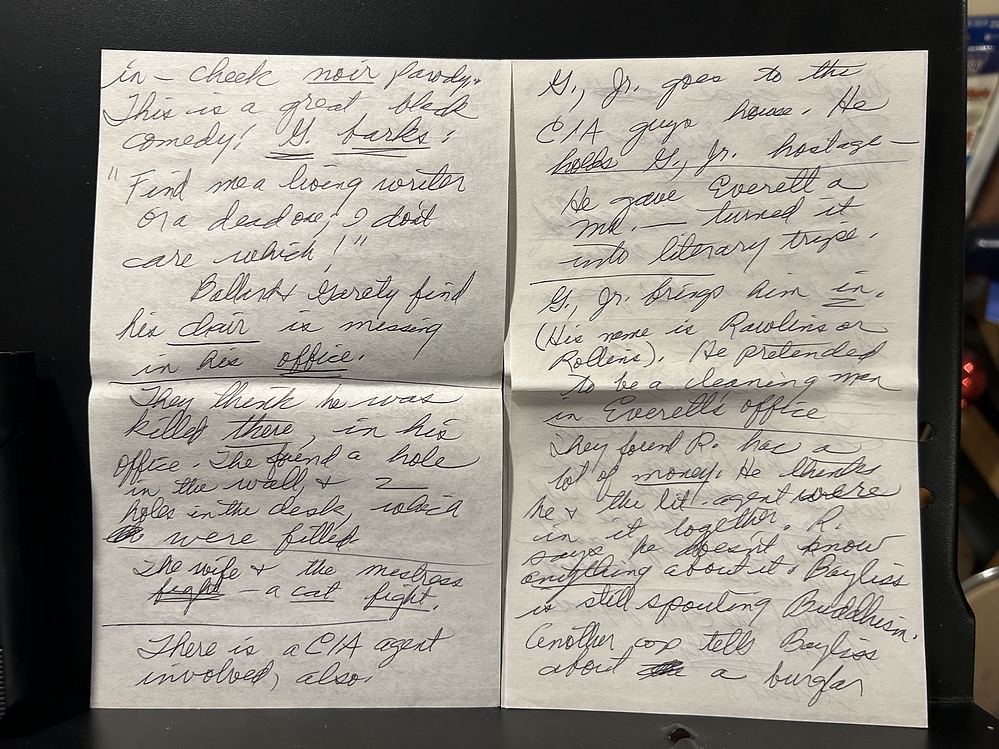 in - cheek noir parody.
This is a great black
comedy! G. barks:
"Find me a living writer
or a dead one; I don't
care which!"
Ballard & Garety find
his chair is missing
in his office.
They think he was
killed there, in his
office. The found a hole
in the wall, & 2
holes in the desk, which
were filled.
The wife & the mistress
fight - a cat fight.
There is a CIA agent
involved, also.
G., Jr. goes to the
CIA guys house. He
holds G., Jr. hostage -
He gave Everett a
ms. - turned it
into literary tripe.
G., Jr. brings him in.
(His name is Rawlins or
Rollins). He pretended
to be a cleaning man
in Everett's office
They found R. has a
lot of money. He thinks
he & the lit. agent were
in it together. R.
says he doesn't know
anything about it. Bayliss
is still spouting Buddhism.
Another cop tells Bayliss
about a burglar